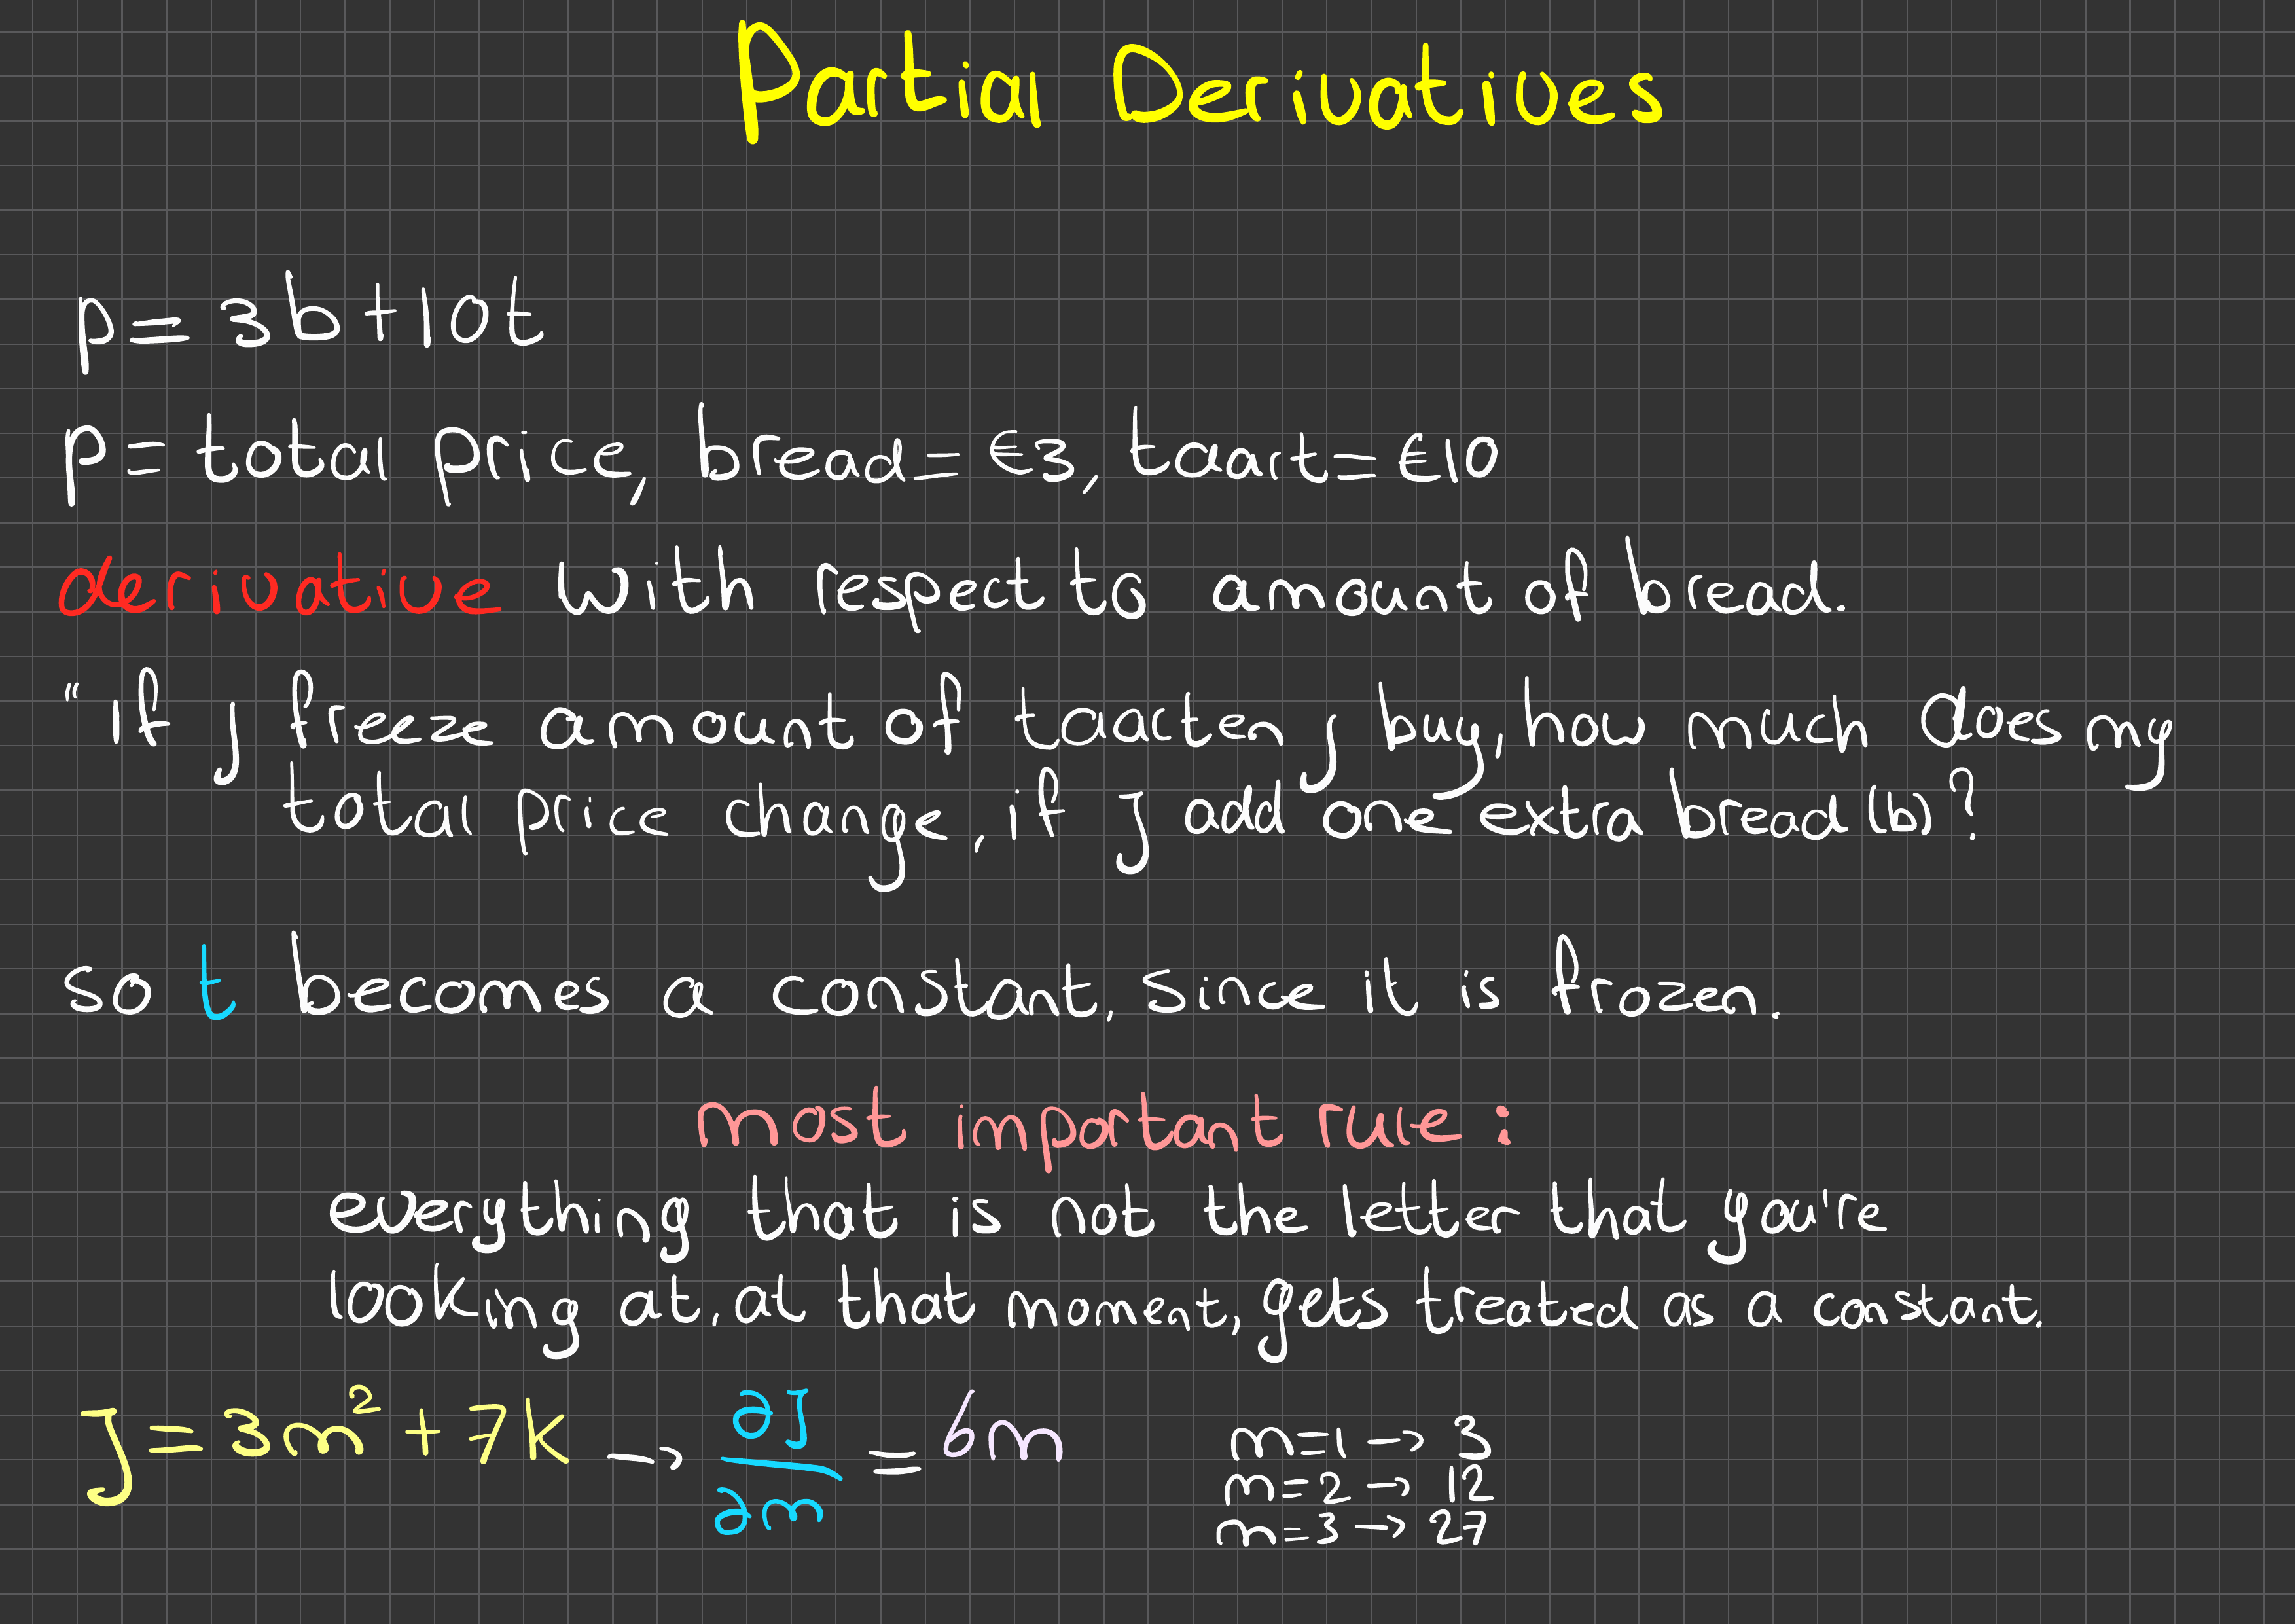 Partial Derivatives
p = 3b + 10t
p = total price, bread = €3, taart = €10
derivative with respect to amount of bread.
"If J freeze amount of taarten J buy, how much does my
total price change, if J add one extra bread (b)?
so t becomes a constant, since it is frozen.
most important rule:
everything that is not the letter that you're
looking at, at that moment, gets treated as a constant.
J = 3m² + 7k → ∂J/∂m = 6m
m=1 → 3
m=2 → 12
m=3 → 27